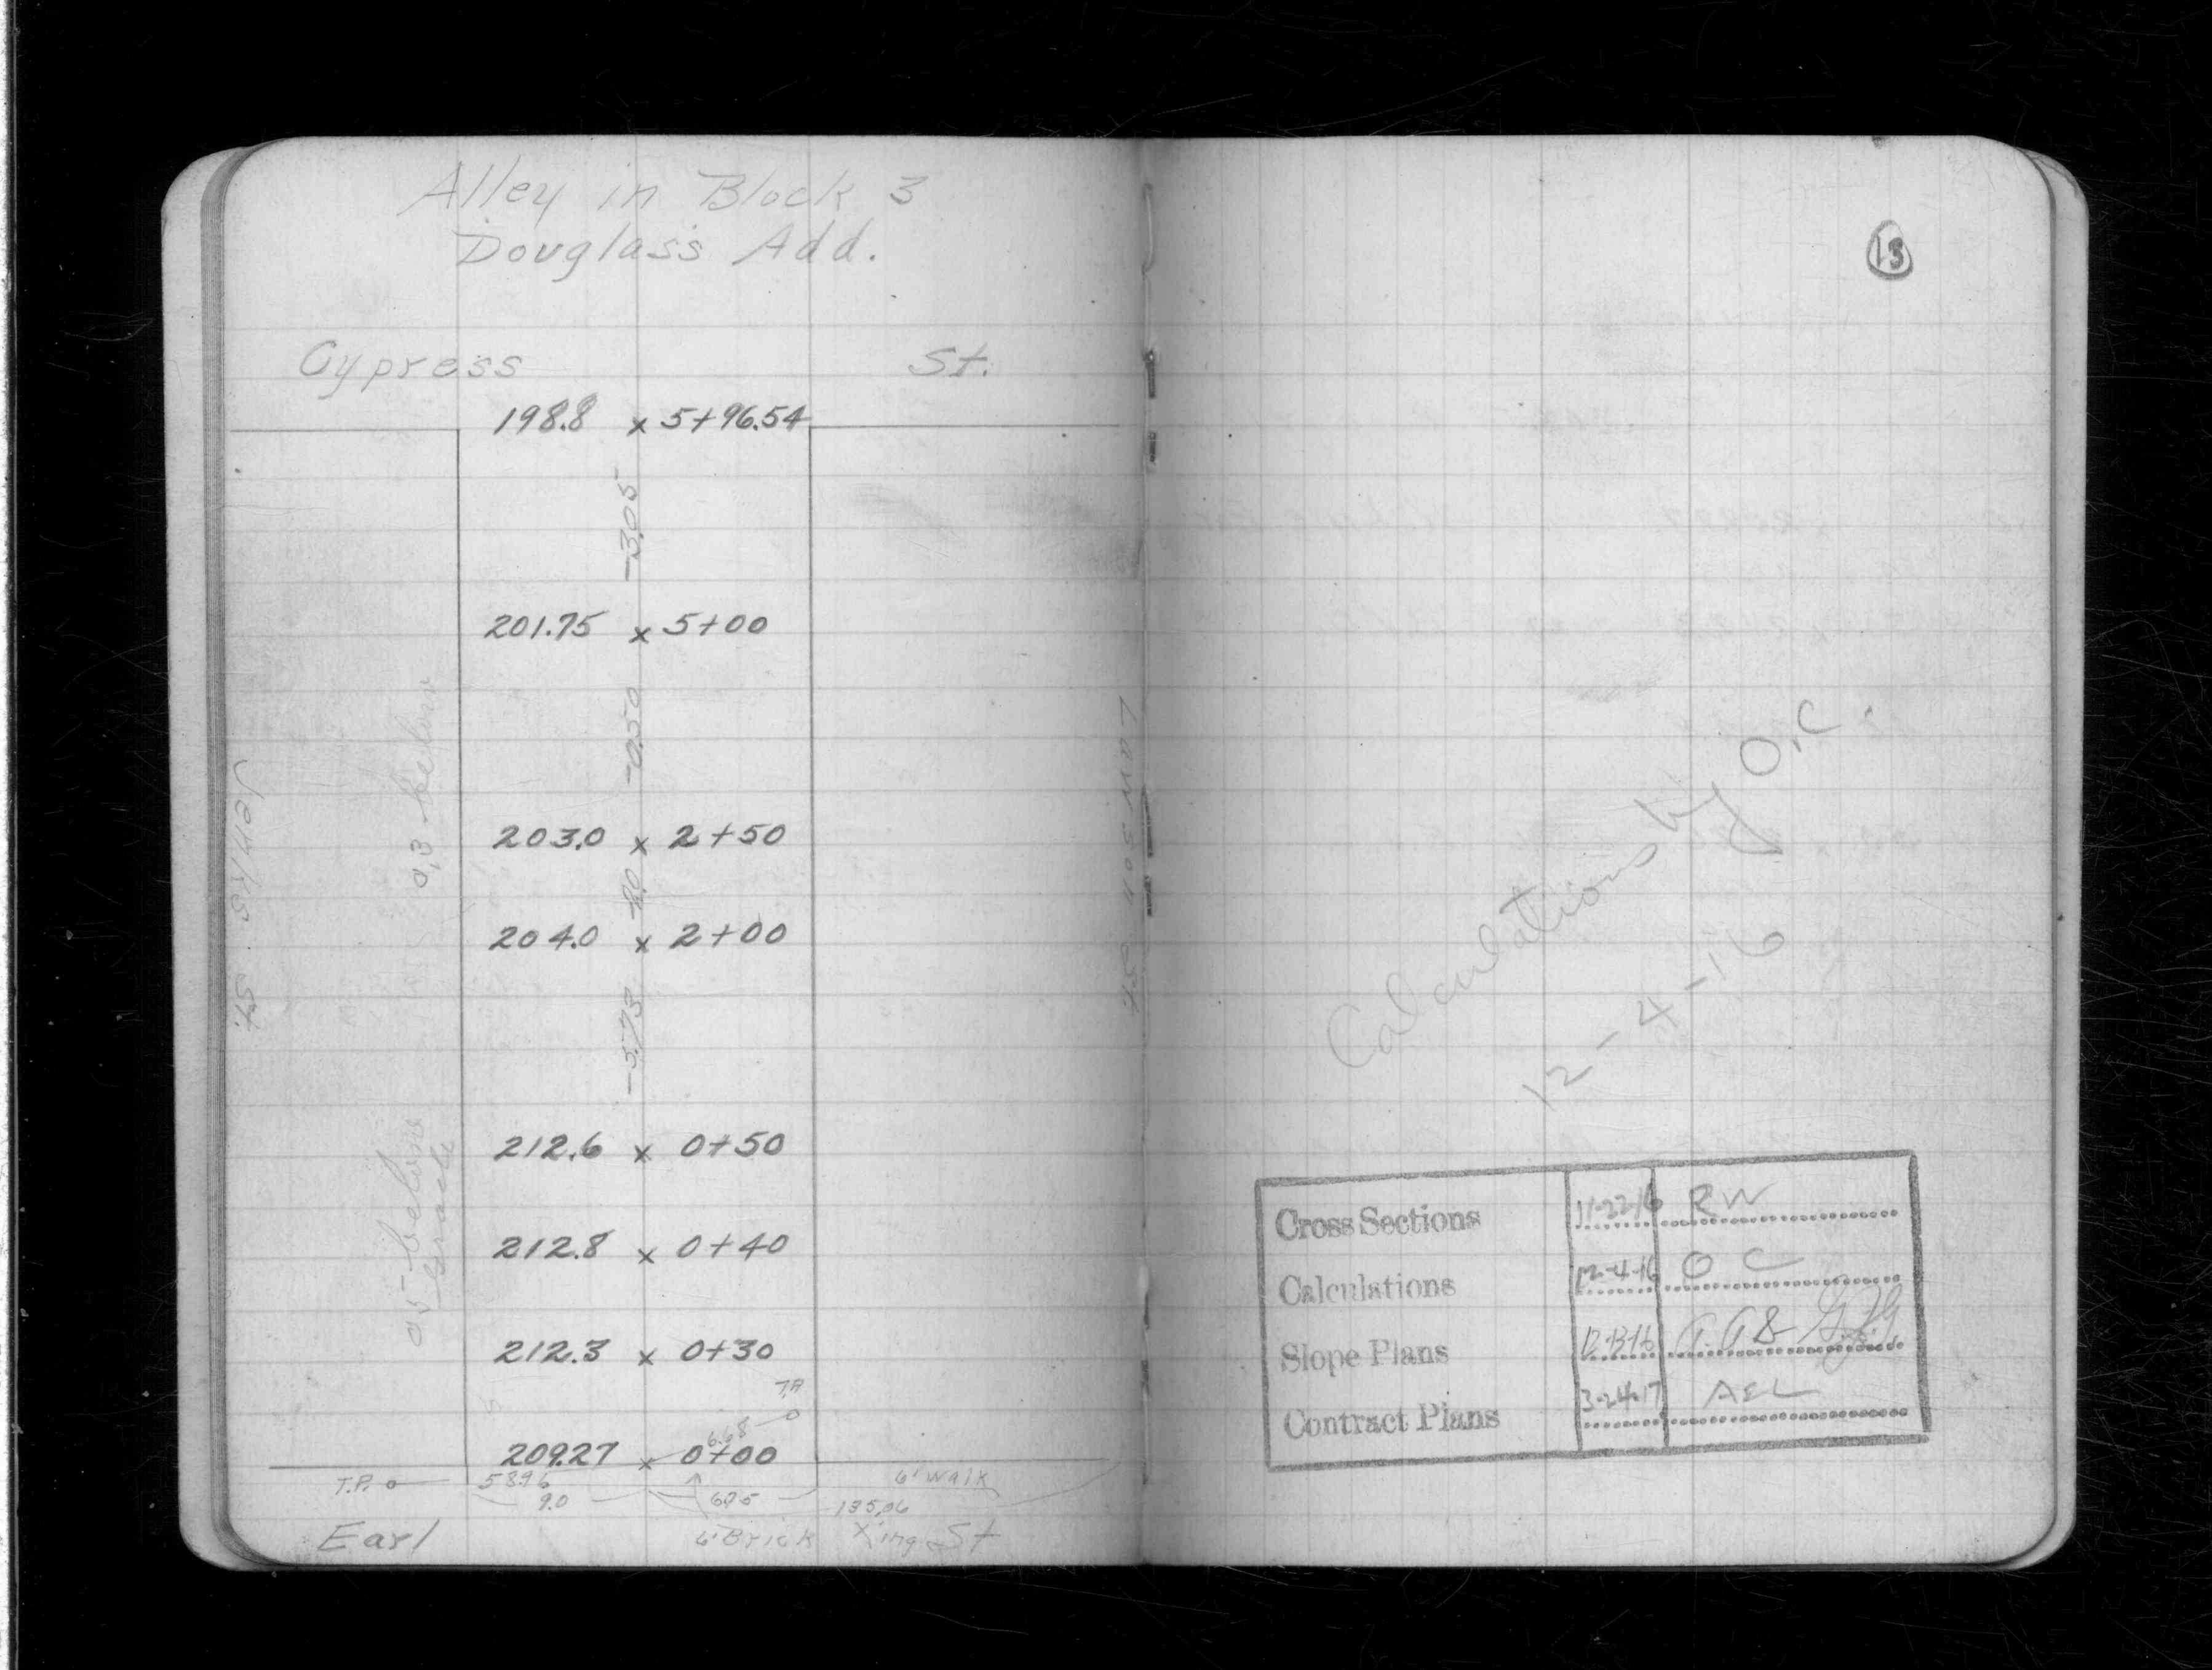 Alley in Block 3
Douglass Add.
Cypress St.
198.8 x 5+96.54
-3.05
201.75 x 5+00
-0.50
0.3 below
203.0 x 2+50
204.0 x 2+00
-5.73
212.6 x 0+50
212.8 x 0+40
0.5 below
212.3 x 0+30
T.P.
6.68
209.27 x 0+00
T.P. 58.96
6' walk
9.0
135.06
Earl 6' Brick X'ing St
St.
13
Calculations by O.C.
12-4-16
Cross Sections 11-22-16 RW
Calculations 12-4-16 O C
Slope Plans
Contract Plans 3-24-17 AEL